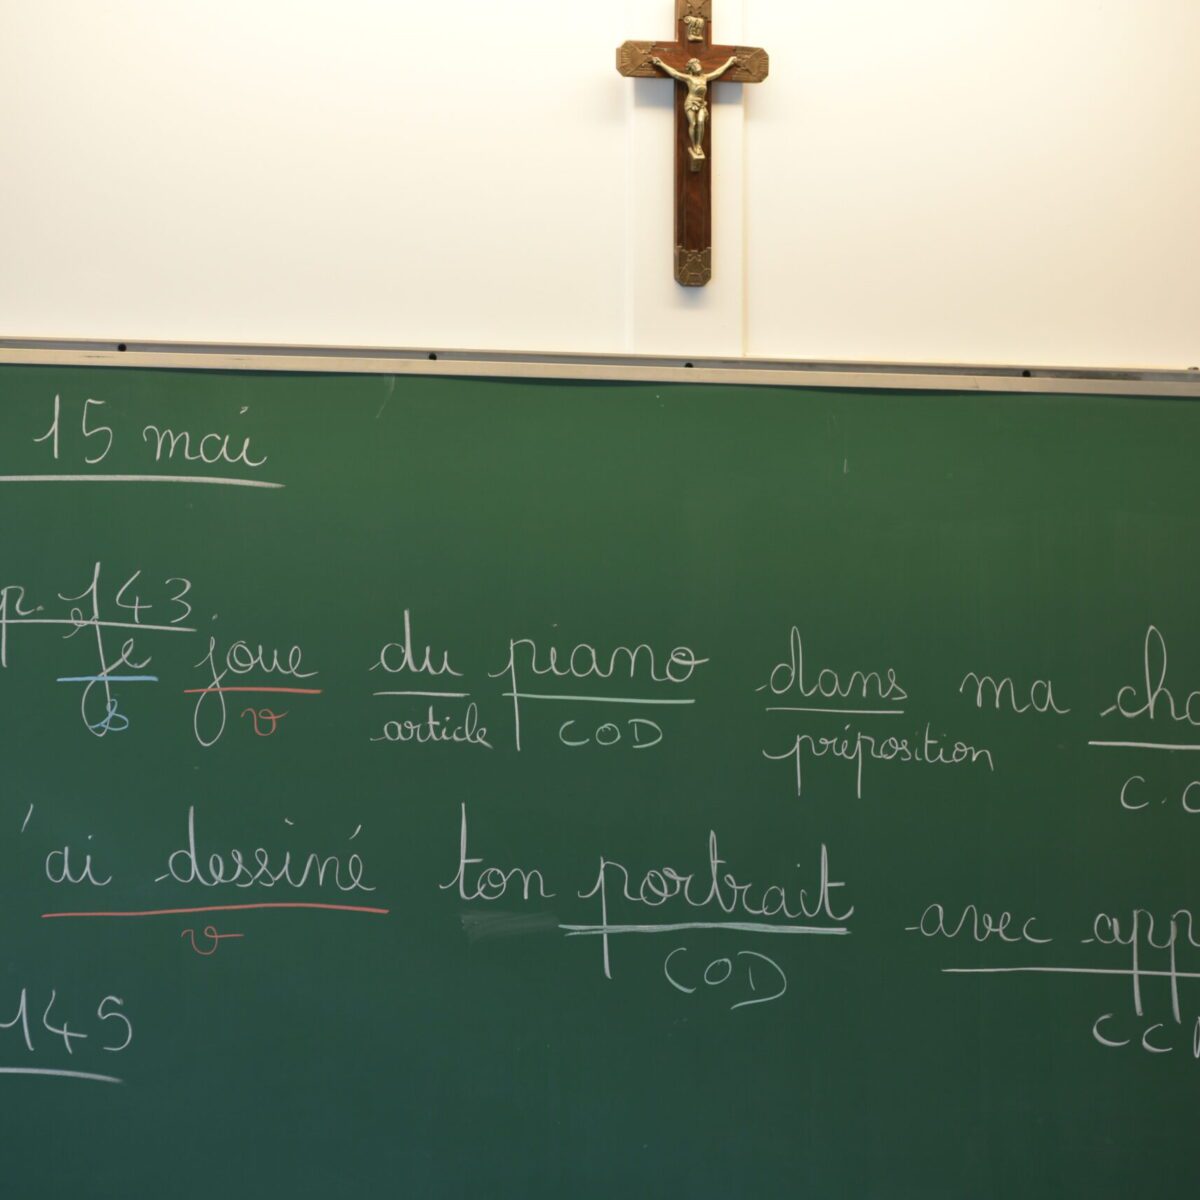 15 mai
p. 143
Je joue du piano dans ma cha
s v article COD préposition C.C
'ai dessiné ton portrait avec app
v COD CC
145